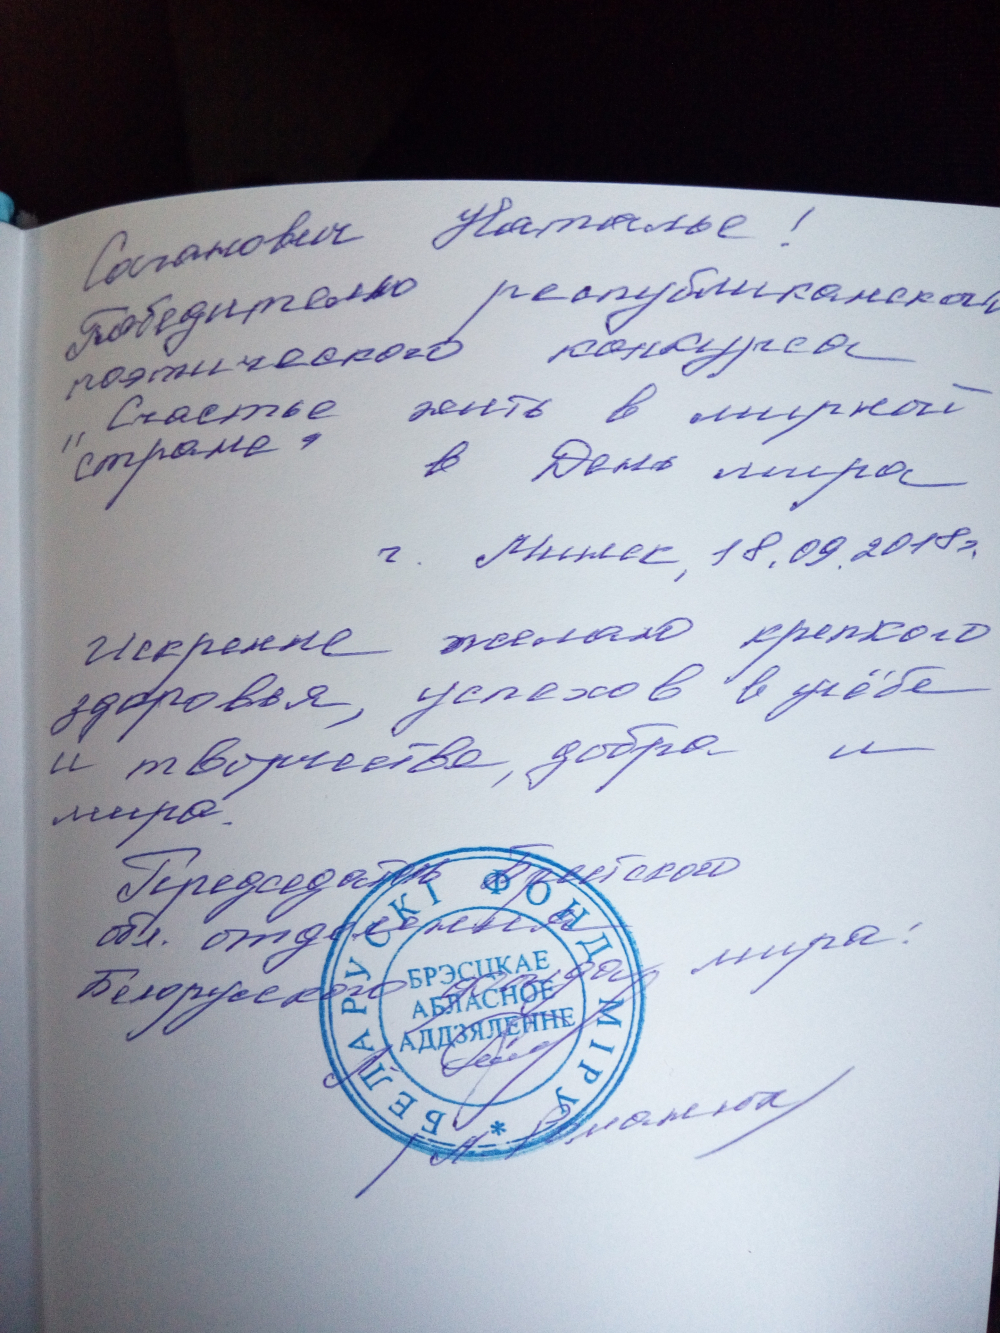 Соганович Наталье!
Победителю республиканского
поэтического конкурса
"Счастье жить в мирной
стране" в День мира
г. Минск, 18.09.2018г.
Искренне желаю крепкого
здоровья, успехов в учёбе
и творчестве, добра и
мира.
Председатель Брестского
обл. отделения
Белорусского фонда мира:
БЕЛАРУСКІ ФОНД МІРУ *
БРЭСЦКАЕ
АБЛАСНОЕ
АДДЗЯЛЕННЕ